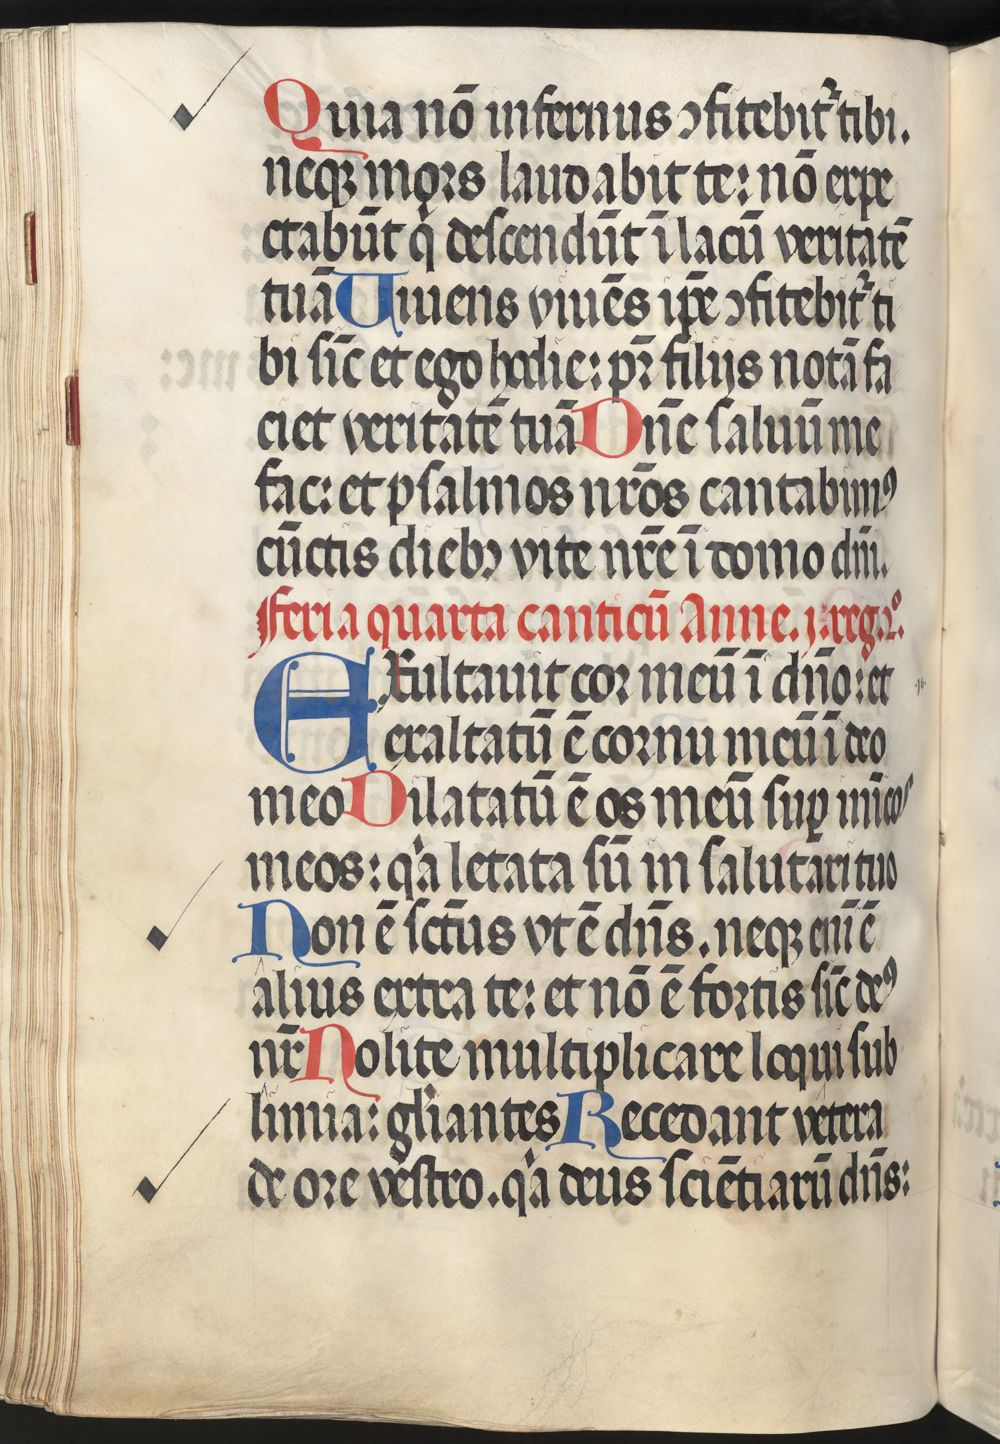 Quia nō infernus ɔfitebit᷑ tibi.
neqꝫ mors laudabit te: nō expe
ctabūt q̇ descendūt ī lacū veritatē
tuā Uiuens viuēs ip̄e ɔfitebit᷑ ti
bi sic̄ et ego hodie: pr̄ filijs notā fa
ciet veritatē tuā Dn̄e saluū me
fac: et psalmos nr̄os cantabimꝰ
cūctis diebꝫ vite nr̄e ī domo dn̄i.
Feria quarta canticū Anne. j. reg. 2º.
Exultauit cor meū ī dn̄o: et
exaltatū ē cornu meū ī deo
meo Dilatatū ē os meū suꝑ inīcos
meos: qͥa letata sū in salutari tuo
Non ē sct̄us vt ē dn̄s. neqꝫ eni ē
alius extra te: et nō ē fortis sic̄ deꝰ
nr̄ Nolite multiplicare loqui sub
limia: gl̄iantes Recedant vetera
de ore vestro. qͥa deus sciētiarū dn̄s: